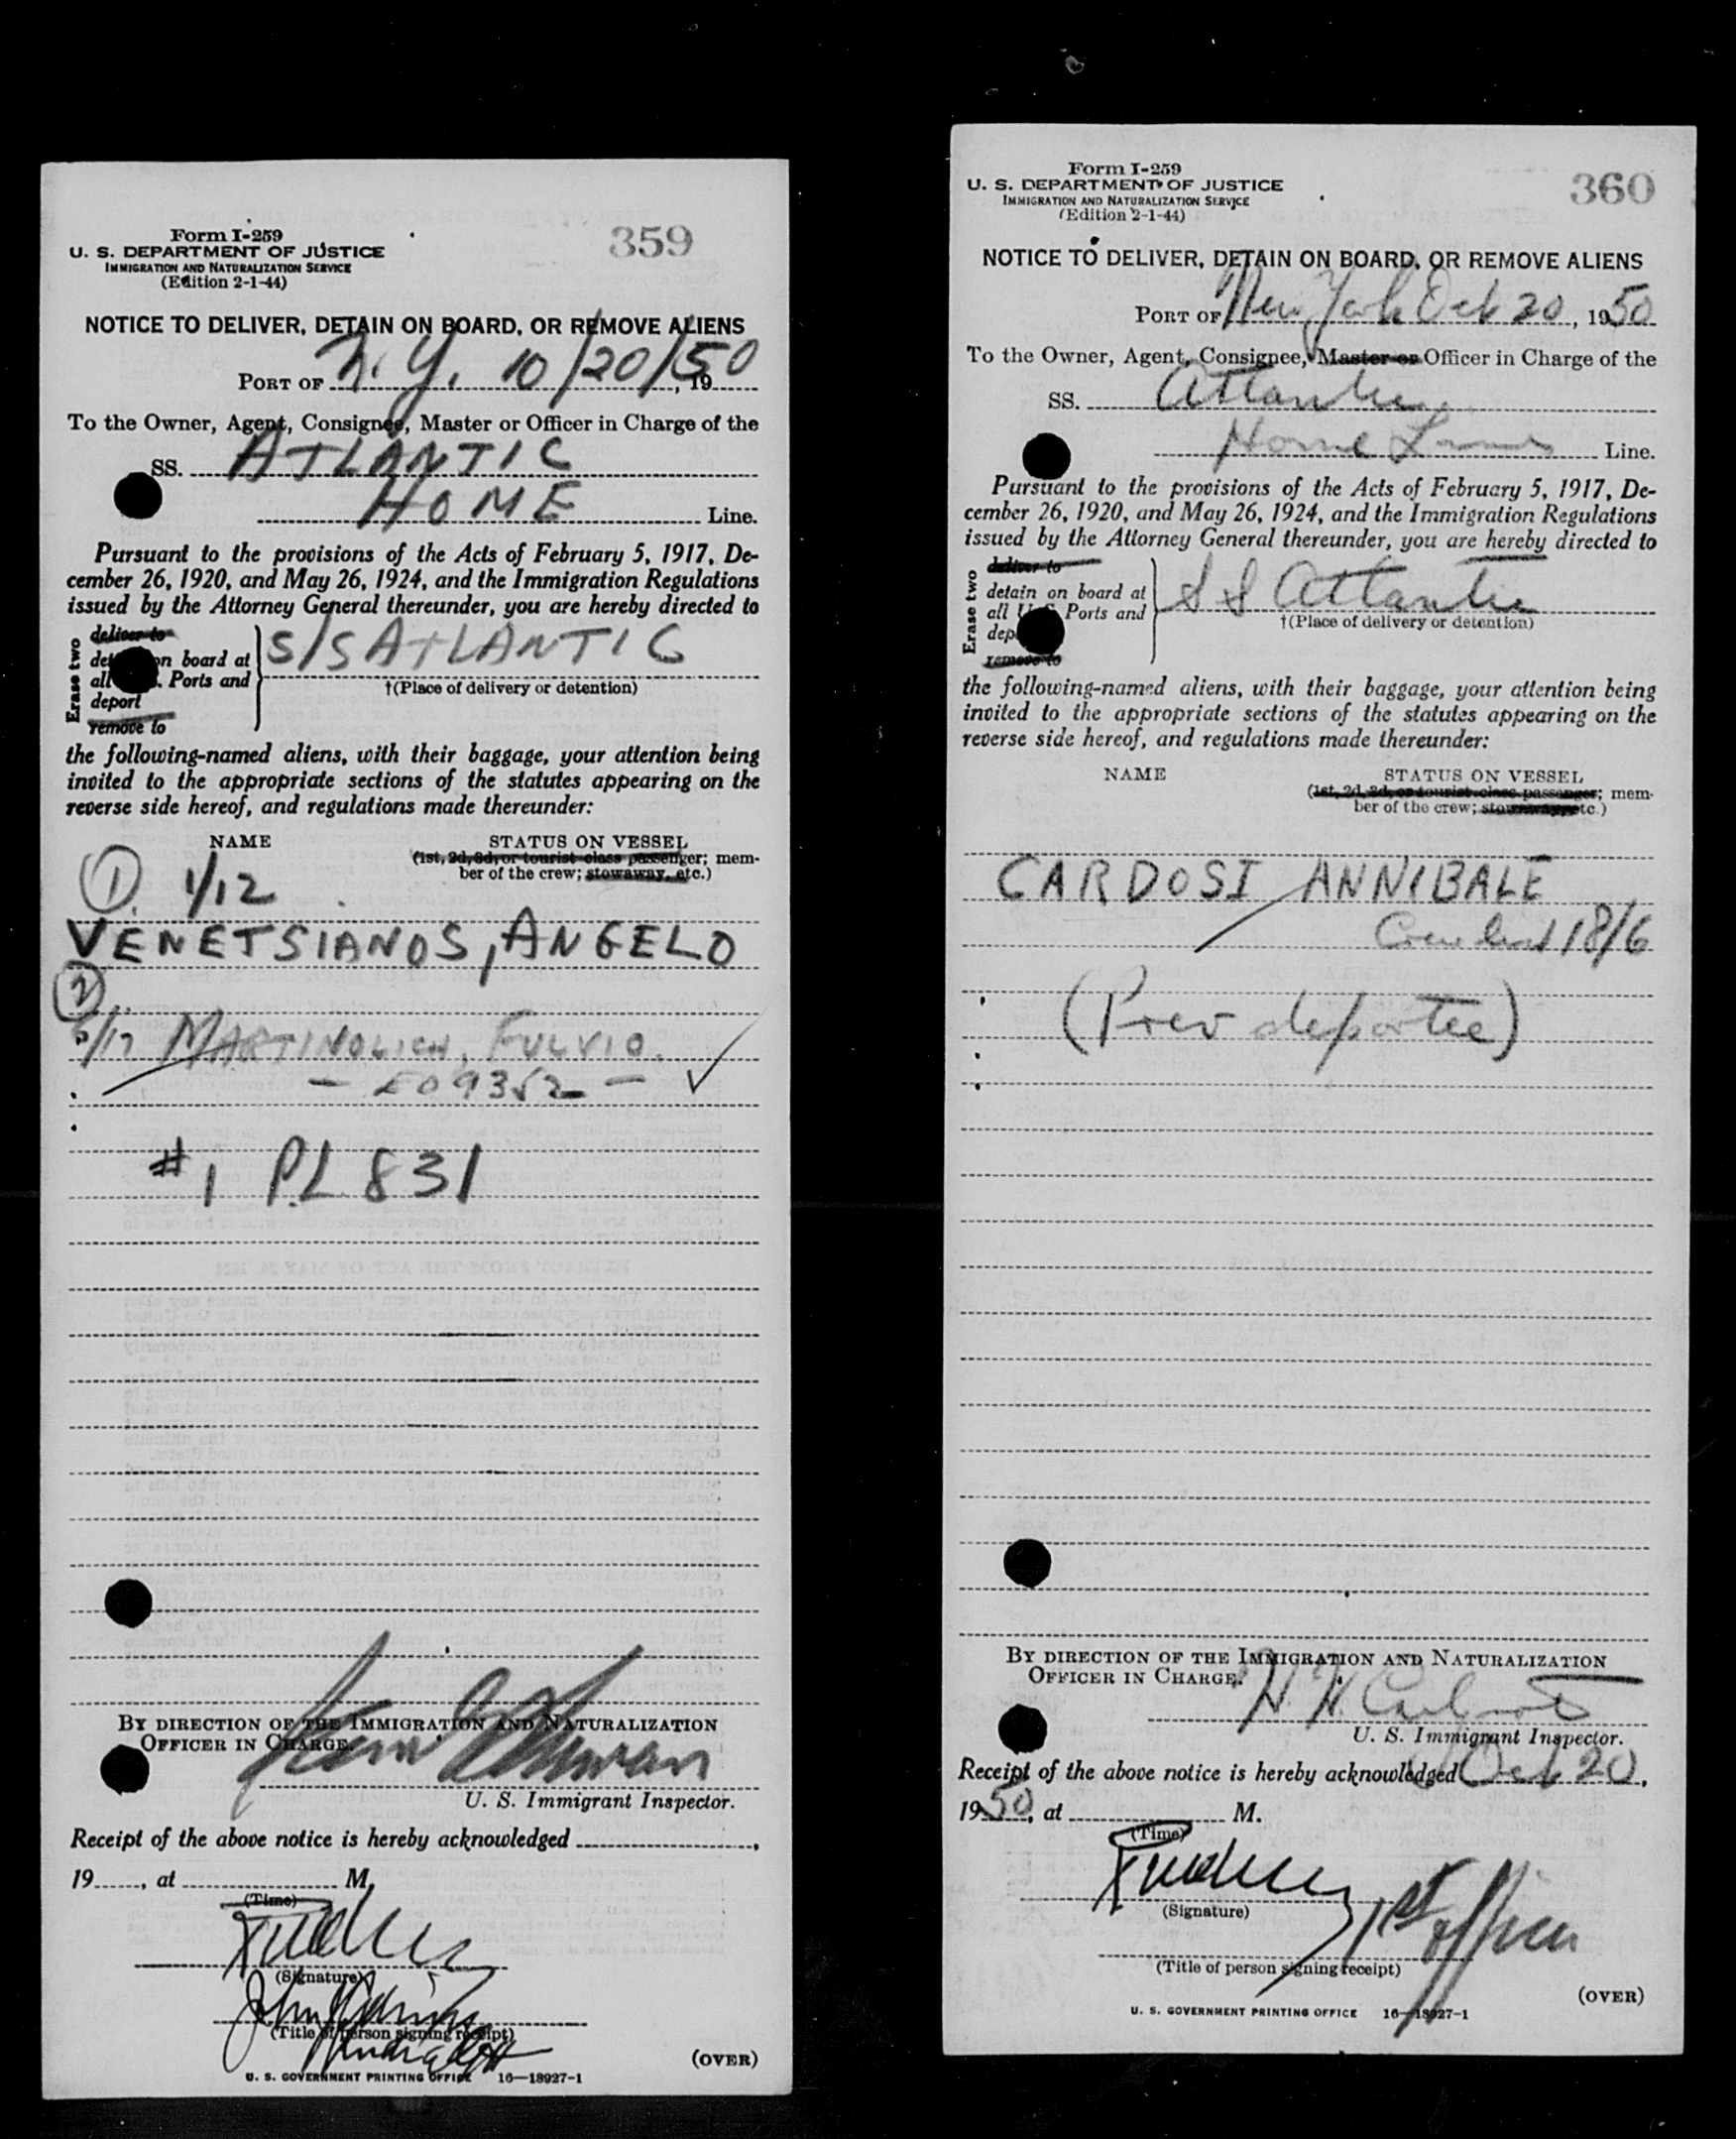 Form I-259
U. S. DEPARTMENT OF JUSTICE
IMMIGRATION AND NATURALIZATION SERVICE
(Edition 2-1-44)
359
NOTICE TO DELIVER, DETAIN ON BOARD, OR REMOVE ALIENS
PORT OF N. Y. 10/20/50, 19
To the Owner, Agent, Consignee, Master or Officer in Charge of the
SS. ATLANTIC
HOME Line.
Pursuant to the provisions of the Acts of February 5, 1917, De-
cember 26, 1920, and May 26, 1924, and the Immigration Regulations
issued by the Attorney General thereunder, you are hereby directed to
Erase two
deliver to
on board at
all . Ports and
deport
remove to
S/S ATLANTIC
†(Place of delivery or detention)
the following-named aliens, with their baggage, your attention being
invited to the appropriate sections of the statutes appearing on the
reverse side hereof, and regulations made thereunder:
NAME STATUS ON VESSEL
(1st, 2d, 3d, or tourist class passenger; mem-
ber of the crew; stowaway, etc.)
① 1/12
VENETSIANOS, ANGELO
②
/17 MARTINOLICH, FULVIO.
09352 ✓
#1 P.L. 831
BY DIRECTION OF THE IMMIGRATION AND NATURALIZATION
OFFICER IN CHARGE.
U. S. Immigrant Inspector.
Receipt of the above notice is hereby acknowledged ,
19 , at M.
(Time)
(Signature)
(Title of person signing receipt)
(OVER)
U. S. GOVERNMENT PRINTING OFFICE 16—18927-1
Form I-259
U. S. DEPARTMENT OF JUSTICE
IMMIGRATION AND NATURALIZATION SERVICE
(Edition 2-1-44)
360
NOTICE TO DELIVER, DETAIN ON BOARD, OR REMOVE ALIENS
PORT OF New York Oct 20, 1950
To the Owner, Agent, Consignee, Master or Officer in Charge of the
SS. Atlantic
Home Lines Line.
Pursuant to the provisions of the Acts of February 5, 1917, De-
cember 26, 1920, and May 26, 1924, and the Immigration Regulations
issued by the Attorney General thereunder, you are hereby directed to
Erase two
deliver to
detain on board at
all U.S. Ports and
dep
remove to
SS Atlantic
†(Place of delivery or detention)
the following-named aliens, with their baggage, your attention being
invited to the appropriate sections of the statutes appearing on the
reverse side hereof, and regulations made thereunder:
NAME STATUS ON VESSEL
(1st, 2d, 3d, or tourist class passenger; mem-
ber of the crew; stowaway, etc.)
CARDOSI ANNIBALE
Crew list 18/6
(Prev deportee)
BY DIRECTION OF THE IMMIGRATION AND NATURALIZATION
OFFICER IN CHARGE.
U. S. Immigrant Inspector.
Receipt of the above notice is hereby acknowledged Oct 20,
1950, at M.
(Time)
(Signature)
1st officer
(Title of person signing receipt)
(OVER)
U. S. GOVERNMENT PRINTING OFFICE 16—18927-1